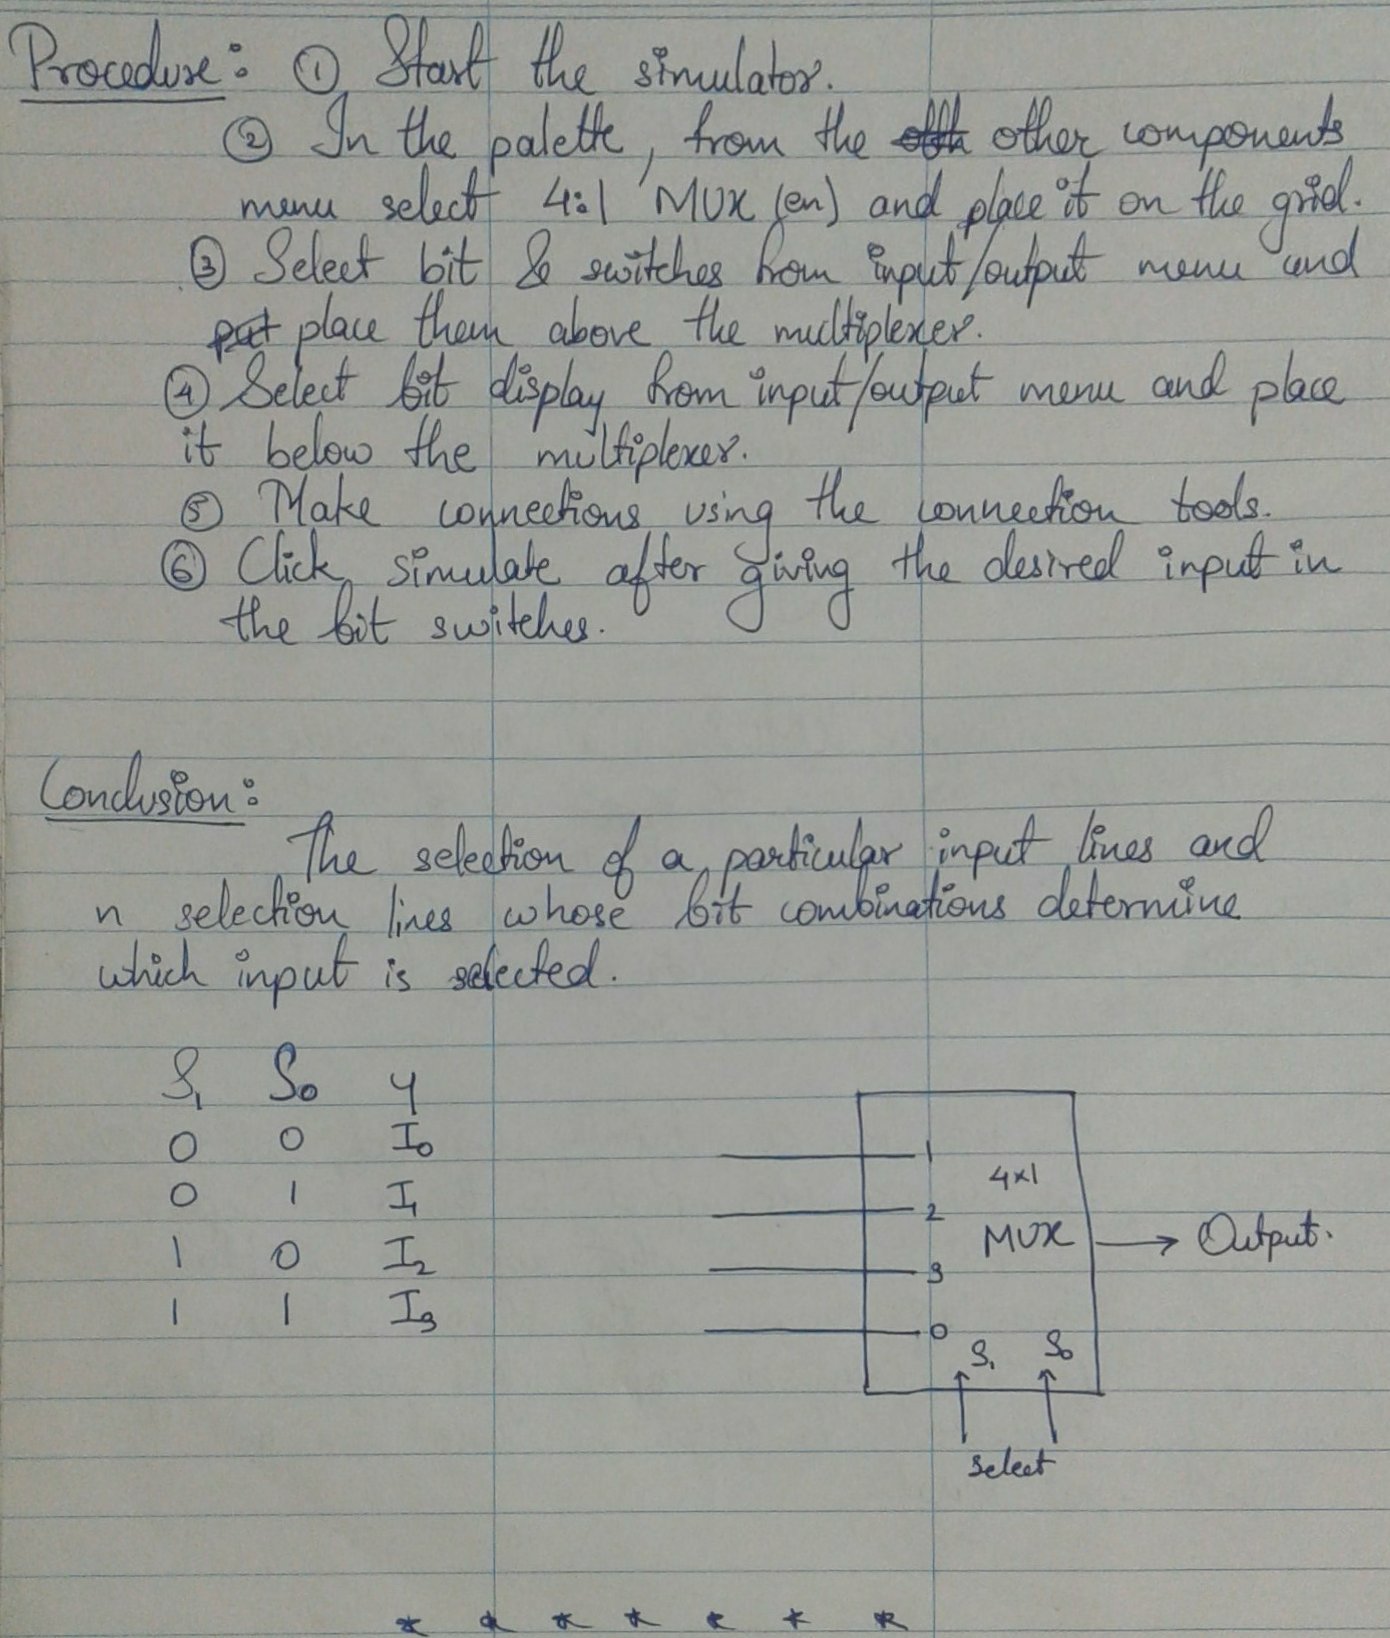 Procedure: ① Start the simulator.
② In the palette, from the other components
menu select 4:1 MUX (en) and place it on the grid.
③ Select bit & switches from input/output menu and
place them above the multiplexer.
④ Select bit display from input/output menu and place
it below the multiplexer.
⑤ Make connections using the connection tools.
⑥ Click simulate after giving the desired input in
the bit switches.
Conclusion:
The selection of a particular input lines and
n selection lines whose bit combinations determine
which input is selected.
S₁ S₀ y
0 0 I₀
0 1 I₁
1 0 I₂
1 1 I₃
1
4x1
2
MUX → Output.
3
0
S₁ S₀
select
* * * * * * *